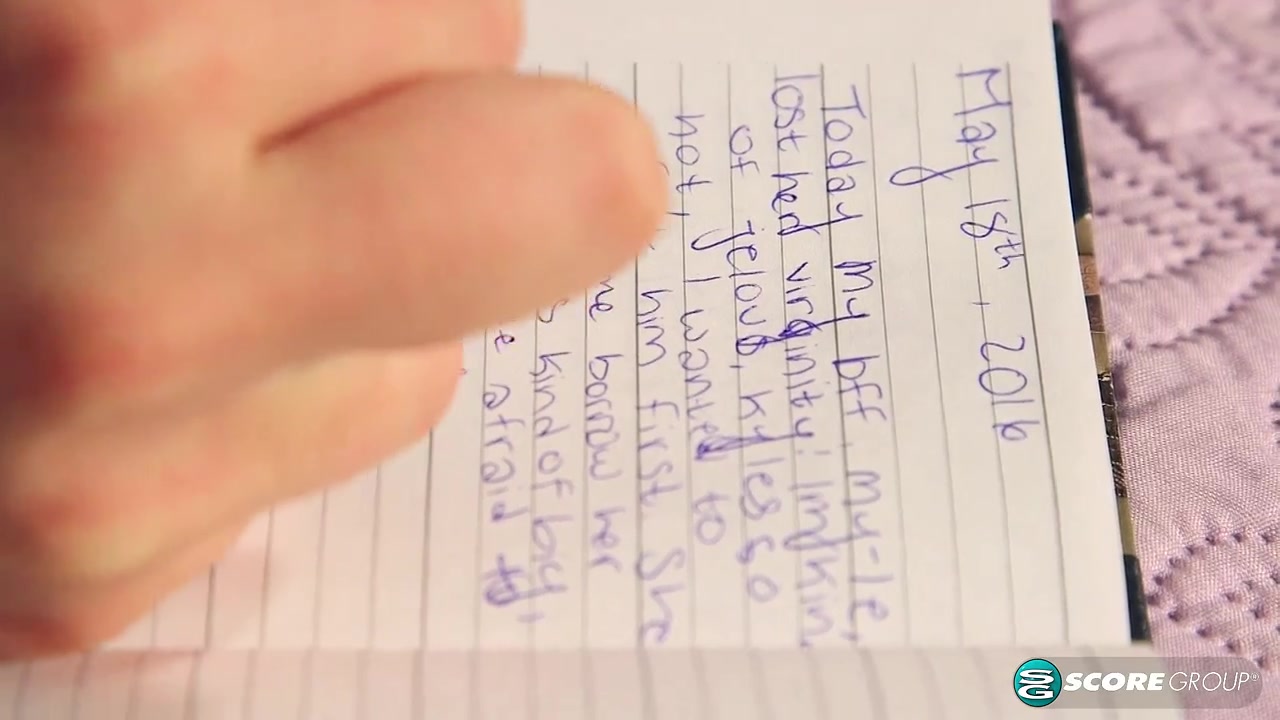 May 18th, 2016
Today my bff, my-le,
lost her virginity! Im kin
of jelous, kyles so
hot, I wanted to
him first She
me borrow her
s kind of big,
e afraid to
SCORE GROUP